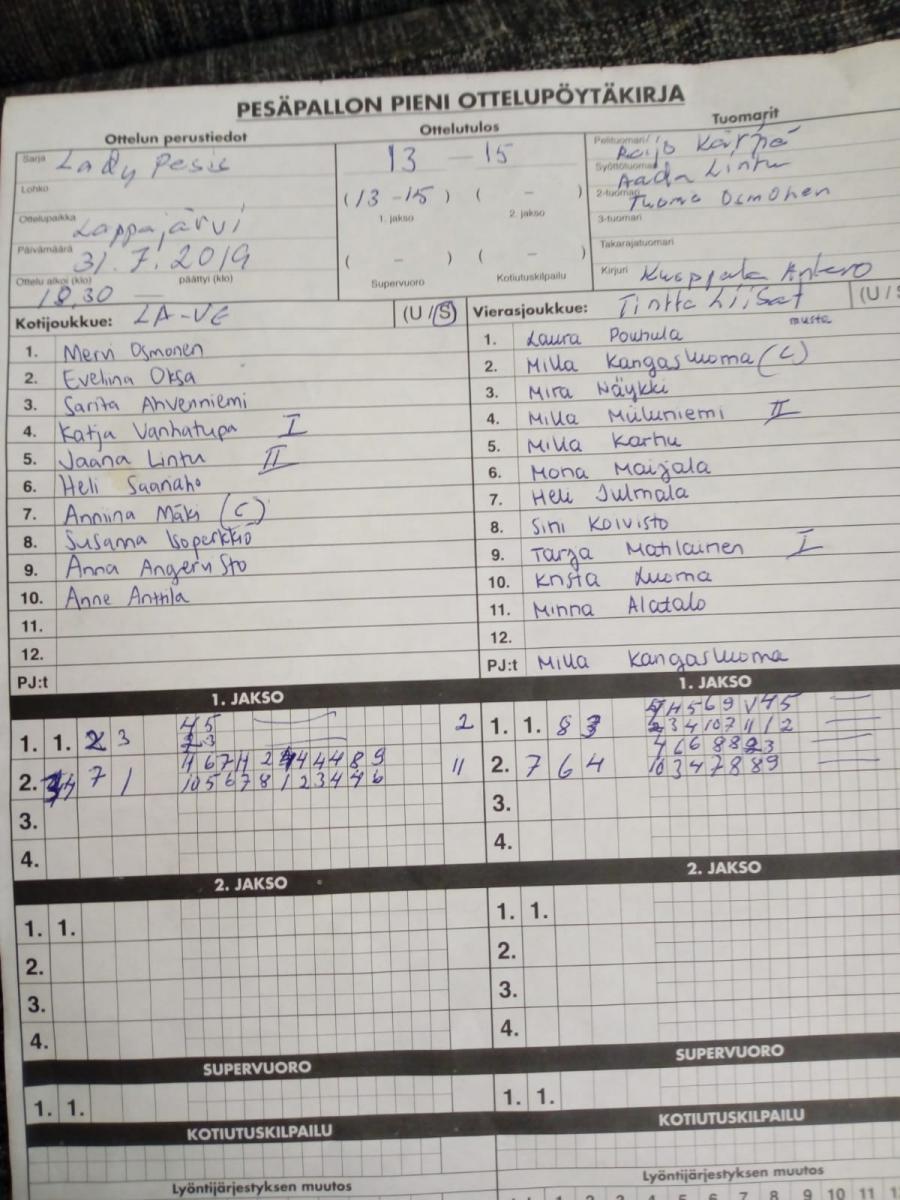 PESÄPALLON PIENI OTTELUPÖYTÄKIRJA
Ottelun perustiedot
Ottelutulos
Tuomarit
Sarja
Lady Pesis
Lohko
Ottelupaikka
Lappajärvi
Päivämäärä
31.7.2019
Ottelu alkoi (klo) päättyi (klo)
18.30 —
13 - 15
(13 - 15) ( - )
1. jakso 2. jakso
( - ) ( - )
Supervuoro Kotiutuskilpailu
Pelituomari/
Raijo Kärpä
Syöttötuomari
Aada Lintu
2-tuomari
Tuomo Osmonen
3-tuomari
Takarajatuomari
Kirjuri Kuoppala Antero
Kotijoukkue: LA-VE (U/S)
1. Mervi Osmonen
2. Eveliina Oksa
3. Sarita Ahvenniemi
4. Katja Vanhatupa I
5. Jaana Lintu II
6. Heli Saariaho
7. Anniina Mäki (C)
8. Susanna Isoperkkiö
9. Anna Angervisto
10. Anne Anttila
11.
12.
PJ:t
Vierasjoukkue: Tintta Liisat (U/S
musta
1. Laura Pouhula
2. Milla Kangasluoma (C)
3. Mira Näykki
4. Milla Myllyniemi II
5. Milla Karhu
6. Mona Maijala
7. Heli Julmala
8. Sini Koivisto
9. Tarja Matilainen I
10. Krista Luoma
11. Minna Alatalo
12.
PJ:t Milla Kangasluoma
1. JAKSO
1. 1. 2 3
4 5
2 3
2
2. 7 1
10 5 6 7 8 1 2 3 4 4 6
11
3.
4.
1. JAKSO
1. 1. 8 3
2 3 4 10 7 11 1 2
2. 7 6 4
4 6 6 8 8 2 3
10 3 4 7 8 8 9
3.
4.
2. JAKSO
1. 1.
2.
3.
4.
2. JAKSO
1. 1.
2.
3.
4.
SUPERVUORO
1. 1.
SUPERVUORO
1. 1.
KOTIUTUSKILPAILU
KOTIUTUSKILPAILU
Lyöntijärjestyksen muutos
Lyöntijärjestyksen muutos